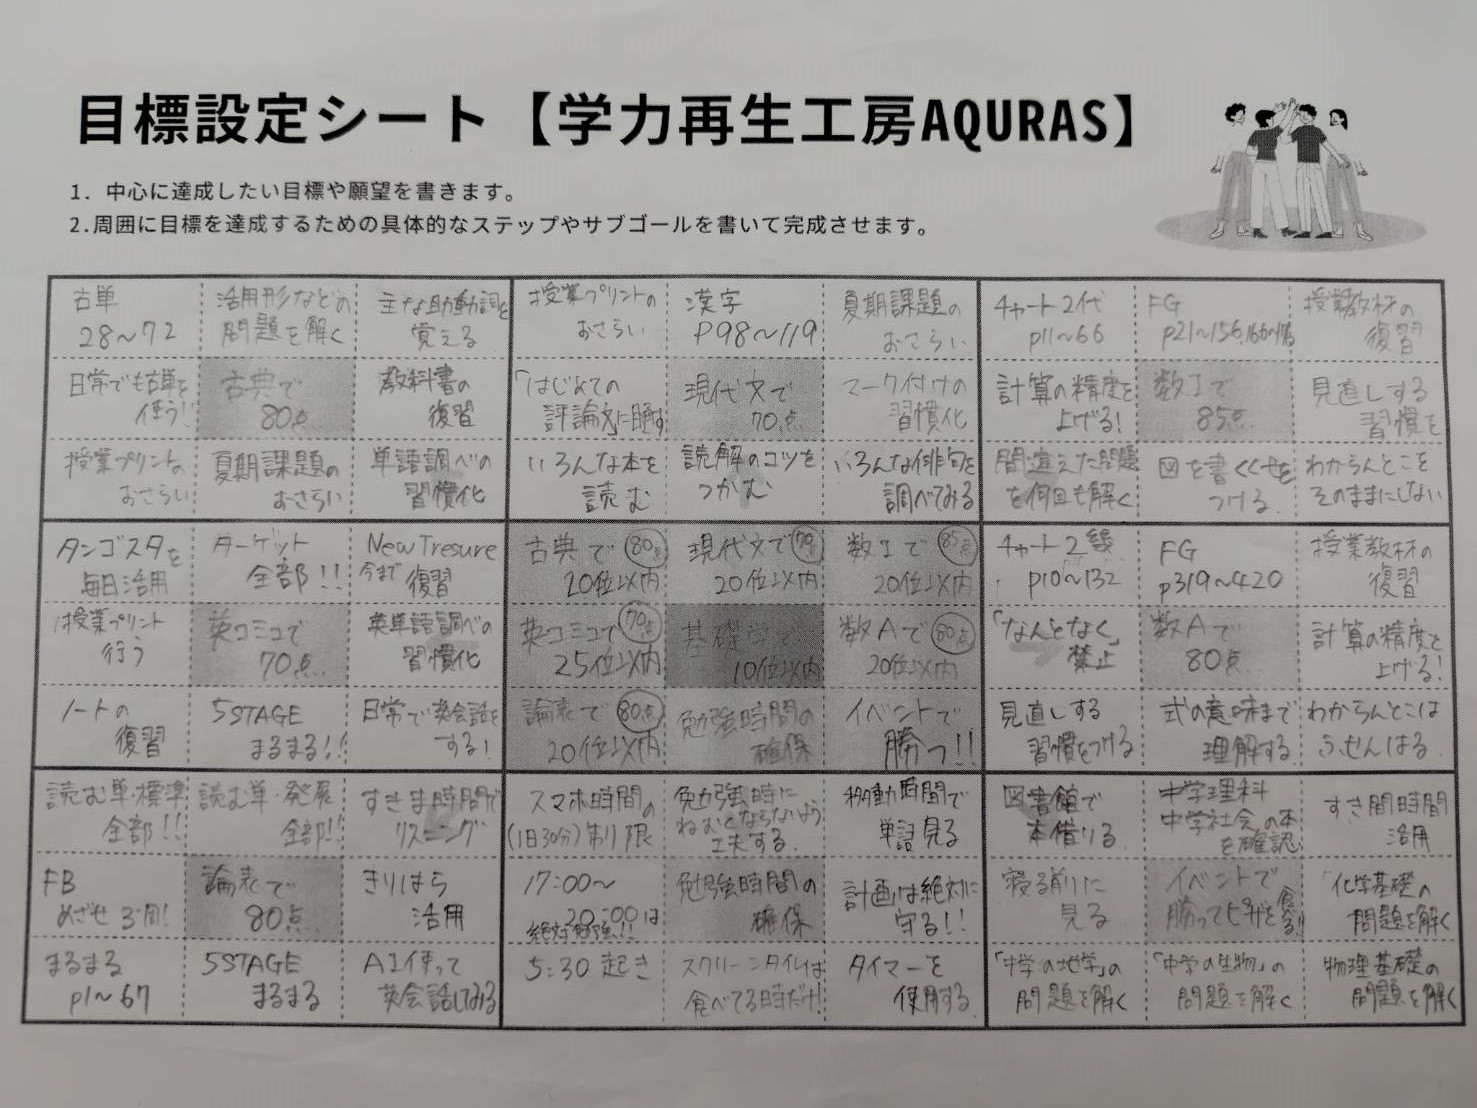 目標設定シート【学力再生工房AQURAS】
1. 中心に達成したい目標や願望を書きます。
2.周囲に目標を達成するための具体的なステップやサブゴールを書いて完成させます。
古単
28〜72
活用形などの
問題を解く
主な助動詞を
覚える
授業プリントの
おさらい
漢字
P98〜119
夏期課題の
おさらい
チャート2代
p11〜66
FG
p21〜156,
授業教材の
復習
日常でも古単を
使う!!
古典で
80点
教科書の
復習
「はじめての
評論文」に
現代文で
70点
マーク付けの
習慣化
計算の精度を
上げる!
数Iで
85点
見直しする
習慣を
授業プリントの
おさらい
夏期課題の
おさらい
単語調べの
習慣化
いろんな本を
読む
読解のコツを
つかむ
いろんな俳句を
調べてみる
間違えた問題
を何回も解く
図を書くくせを
つける
わからんとこを
そのままにしない
タンゴスタを
毎日活用
ターゲット
全部!!
New Tresure
今まで復習
古典で 80点
20位以内
現代文で 70点
20位以内
数Iで 85点
20位以内
チャート2
p10〜132
FG
p319〜420
授業教材の
復習
授業プリント
行う
英コミュで
70点
英単語調べの
習慣化
英コミュで 70点
25位以内
基礎学で
10位以内
数Aで 80点
20位以内
「なんとなく」
禁止
数Aで
80点
計算の精度を
上げる!
ノートの
復習
5STAGE
まるまる!!
日常で英会話を
する!
論表で 80点
20位以内
勉強時間の
確保
イベントで
勝つ!!
見直しする
習慣をつける
式の意味まで
理解する
わからんとこは
ふせんはる
読む単・標準
全部!!
読む単・発展
全部!!
すきま時間で
リスニング
スマホ時間の
(1日30分)制限
勉強時に
ねむたくならないよう
工夫する
移動時間で
単語見る
図書館で
本借りる
中学理科
中学社会の本
を確認
すき間時間
活用
FB
めざせ3周!
論表で
80点
きりはら
活用
17:00〜
20:00は
絶対勉強!!
勉強時間の
確保
計画は絶対に
守る!!
寝る前に
見る
イベントで
勝ってピザを食べる!!
「化学基礎」の
問題を解く
まるまる
p1〜67
5STAGE
まるまる
AI使って
英会話してみる
5:30 起き
スクリーンタイムは
食べてる時だけ!
タイマーを
使用する
「中学の地学」の
問題を解く
「中学の生物」の
問題を解く
物理基礎の
問題を解く